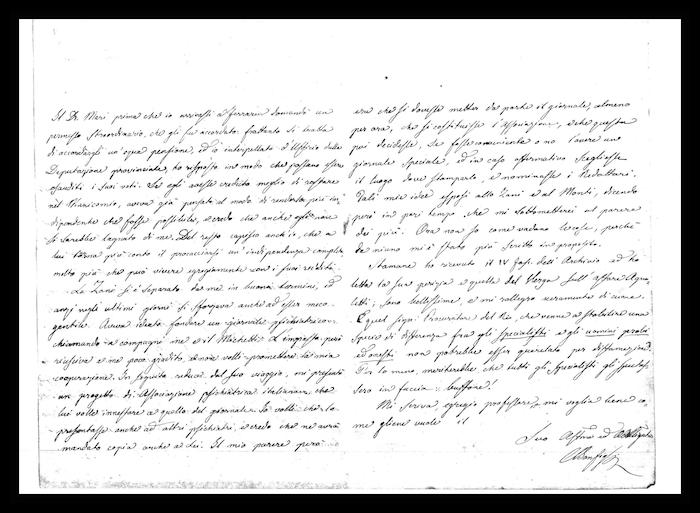 Il Dr. Mari prima che io arrivassi a Ferrara domandò un
permesso straordinario, che gli fu accordato: frattanto si tratta
di accordargli un'equa pensione, ed io interpellato d'Ufficio dalla
Deputazione provinciale, ho risposto in modo che possano essere
esauditi i suoi voti. Se egli avesse creduto meglio di restare
nel Manicomio, aveva già pensato al modo di renderlo più in
dipendente che fosse possibile, e credo che anche egli non
si sarebbe lagnato di me. Del resto capisco anch'io, che a
lui torna più conto il procacciarsi un'indipendenza completa
molto più che può vivere egregiamente con i suoi redditi.
Lo Zani si è separato da me in buoni termini, ed
anzi negli ultimi giorni si sforzava anche ad esser meco
gentile. Aveva ideato fondare un giornale psichiatrico
chiamando in compagni me e il Michetti. L'impresa però
riusciva a me poco gradita, e non volli promettere la mia
cooperazione. In seguito reduce dal suo viaggio, mi presentò
un progetto di Associazione psichiatrica italiana, che
lui volle innestare a quello del giornale. Io volli che lo
presentasse anche ad altri psichiatri, e credo che ne avrà
mandato copia anche a Lei. Il mio parere però
era che si dovesse metter da parte il giornale, almeno
per ora, che si costituisse l'associazione, e che questa
poi decidesse, se fosse conveniente o no l'avere un
giornale speciale, ed in caso affermativo scegliesse
il luogo dove stamparlo, e nominasse i Redattori.
Tali mie idee esposi allo Zani e al Monti, dicendo
però in pari tempo, che mi sottometterei al parere
dei più. Ora non so come vadano le cose, perchè
da niuno mi è stato più scritto in proposito.
Stamane ho ricevuto il IV fasc. dell'Archivio ed ho
letto la sua perizia e quella del Verga sull'affare
sono bellissime, e mi rallegro veramente di cuore.
E quel sign. Procuratore del Re, che venne a stabilire una
specie di differenza fra gli specialisti e gli uomini periti
ed onesti non potrebbe esser querelato per diffamazione?
Per lo meno, meriterebbe che tutti gli specialisti gli
sero in faccia: buffone!
Mi scriva, egregio professore, mi voglia bene co
me gliene vuole il
Suo Affmo ed